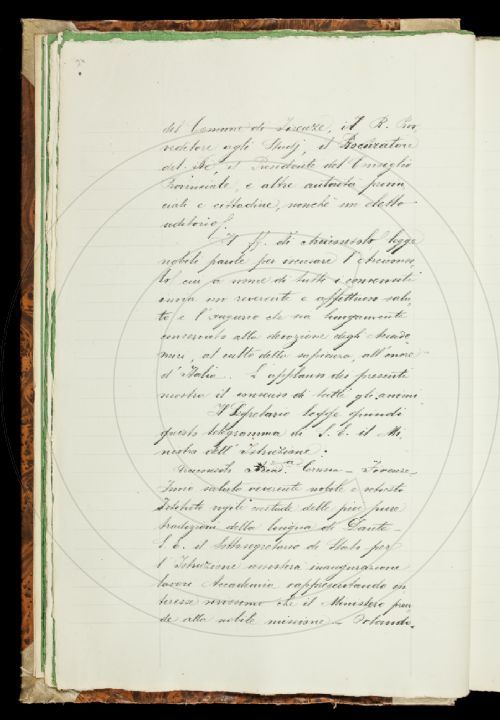 del Comune di Firenze, il R. Prov
veditore agli Studj, il Procuratore
del Re, il Presidente del Consiglio
Provinciale, e altre autorità provin
ciali e cittadine, nonchè un eletto
uditorio.
Il ff. di Arciconsolo legge
nobili parole per scusare l'Arciconso
lo, cui a nome di tutti i convenuti
invia un reverente e affettuoso salu
to e l'augurio che sia lungamente
conservato alla devozione degli Accade
mici, al culto della sapienza, all'onore
d'Italia. L'applauso dei presenti
mostra il consenso di tutti gli animi.
Il Segretario legge quindi
questo telegramma di S. E. il Mi
nistro dell'Istruzione:
Arciconsolo Accad. Crusca - Firenze -
Invio saluto reverente nobile e vetusto
Istituto vigile custode delle più pure
tradizioni della lingua di Dante -
S. E. il Sottosegretario di Stato per
l'Istruzione assisterà inaugurazione
lavori Accademia rappresentando in
teresse vivissimo che il Ministero pren
de alla nobile missione - Orlando.